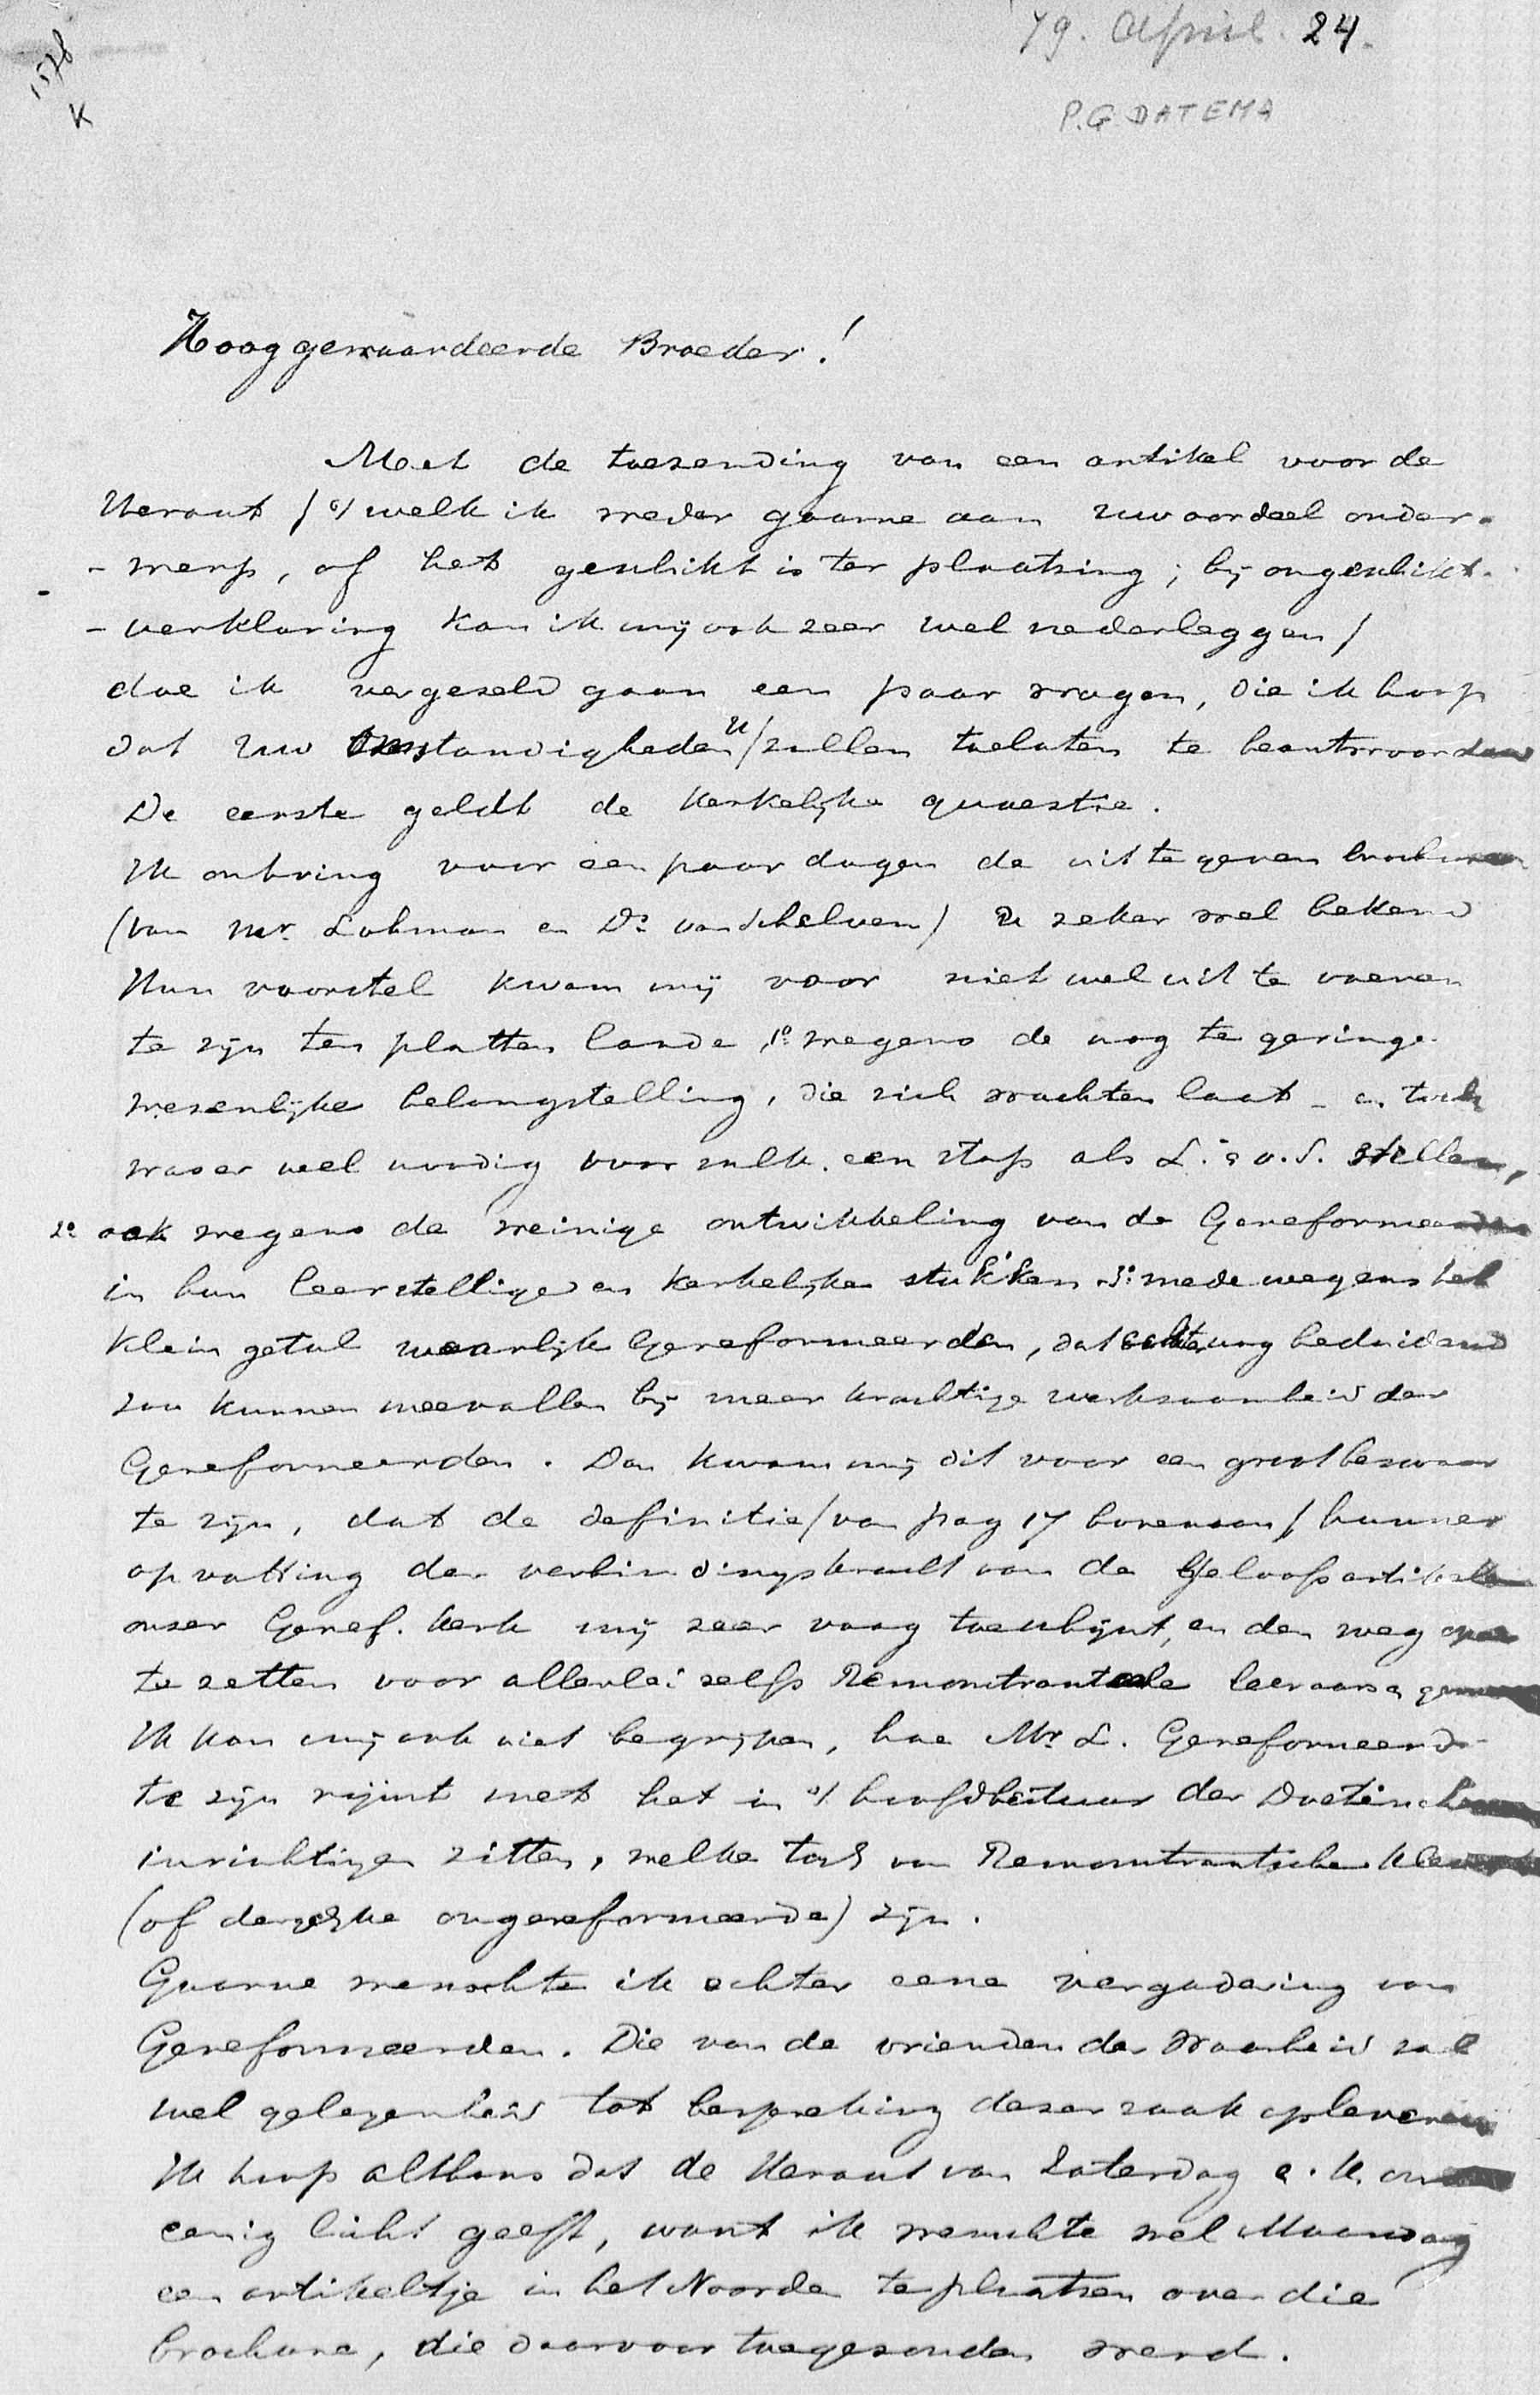 79. April. 24.
P.G. DATEMA
1578
K
Hooggewaardeerde Broeder!
Met de toezending van een artikel voor de
Heraut / 't welk ik weder gaarne aan uw oordeel onder-
- werp, of het geschikt is ter plaatsing; bij ongeschikt-
- verklaring kan ik mij ook zeer wel nederleggen /
doe ik vergezeld gaan een paar vragen, die ik hoop
dat uw omstandigheden U / zullen toelaten te beantwoorden
De eerste geldt de kerkelijke quaestie.
Ik ontving voor een paar dagen de uitgegeven brochure
(van Mr. Lohman en Ds. van Schelven) U zeker wel bekend
Hun voorstel kwam mij voor niet wel uit te voeren
te zijn ten platten lande, 1o. wegens de nog te geringe
wezenlijke belangstelling, die zich wachten laat - en toch
was er veel noodig voor zulk een stap als L. & v. S. stellen,
2o ook wegens de weinige ontwikkeling van de Gereformeerden
in hun leerstellige en kerkelijke stukken 3o. mede wegens het
klein getal waarlijk Gereformeerden, dat echter nog beduidend
zou kunnen meevallen bij meer krachtige werkzaamheid der
Gereformeerden. Dan kwam mij dit voor een groot bezwaar
te zijn, dat de definitie / van pag 17 bovenaan / hunner
opvatting der verbindingskracht van de Geloofsartikelen
onzer Geref. kerk mij zeer vaag toeschijnt, en den weg open
te zetten voor allerlei zelfs Remonstrantsche leeraars
Ik kan mij ook niet begrijpen, hoe Mr. L. Gereformeerd
te zijn rijmt met het in 't hoofdbestuur der Doetinchem
inrichtingen zitten, welke toch van Remonstrantsche kleur
(of dergelijke ongereformeerde) zijn.
Gaarne wenschte ik echter eene vergadering van
Gereformeerden. Die van de vrienden der waarheid zal
wel gelegenheid tot bespreking dezer zaak opleveren
Ik hoop althans dat de Heraut van Zaterdag e. k. ons
eenig licht geeft, want ik wenschte wel Maandag
een artikeltje in het Noorden te plaatsen over die
brochure, die daarvoor toegezonden werd.